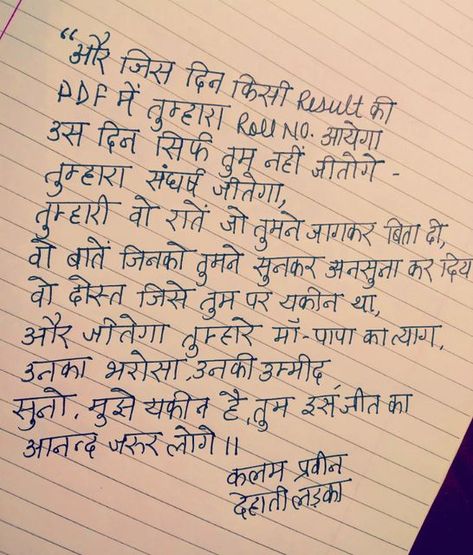 “और जिस दिन किसी Result की
PDF में तुम्हारा Roll NO. आयेगा
उस दिन सिर्फ तुम नहीं जीतोगे -
तुम्हारा संघर्ष जीतेगा,
तुम्हारी वो रातें जो तुमने जागकर बिता दी,
वो बातें जिनको तुमने सुनकर अनसुना कर दिय
वो दोस्त जिसे तुम पर यकीन था,
और जीतेगा तुम्हारे माँ-पापा का त्याग,
उनका भरोसा, उनकी उम्मीद
सुनो, मुझे यकीन है, तुम इस जीत का
आनन्द जरुर लोगे।।
कलम प्रवीन
देहाती लड़का